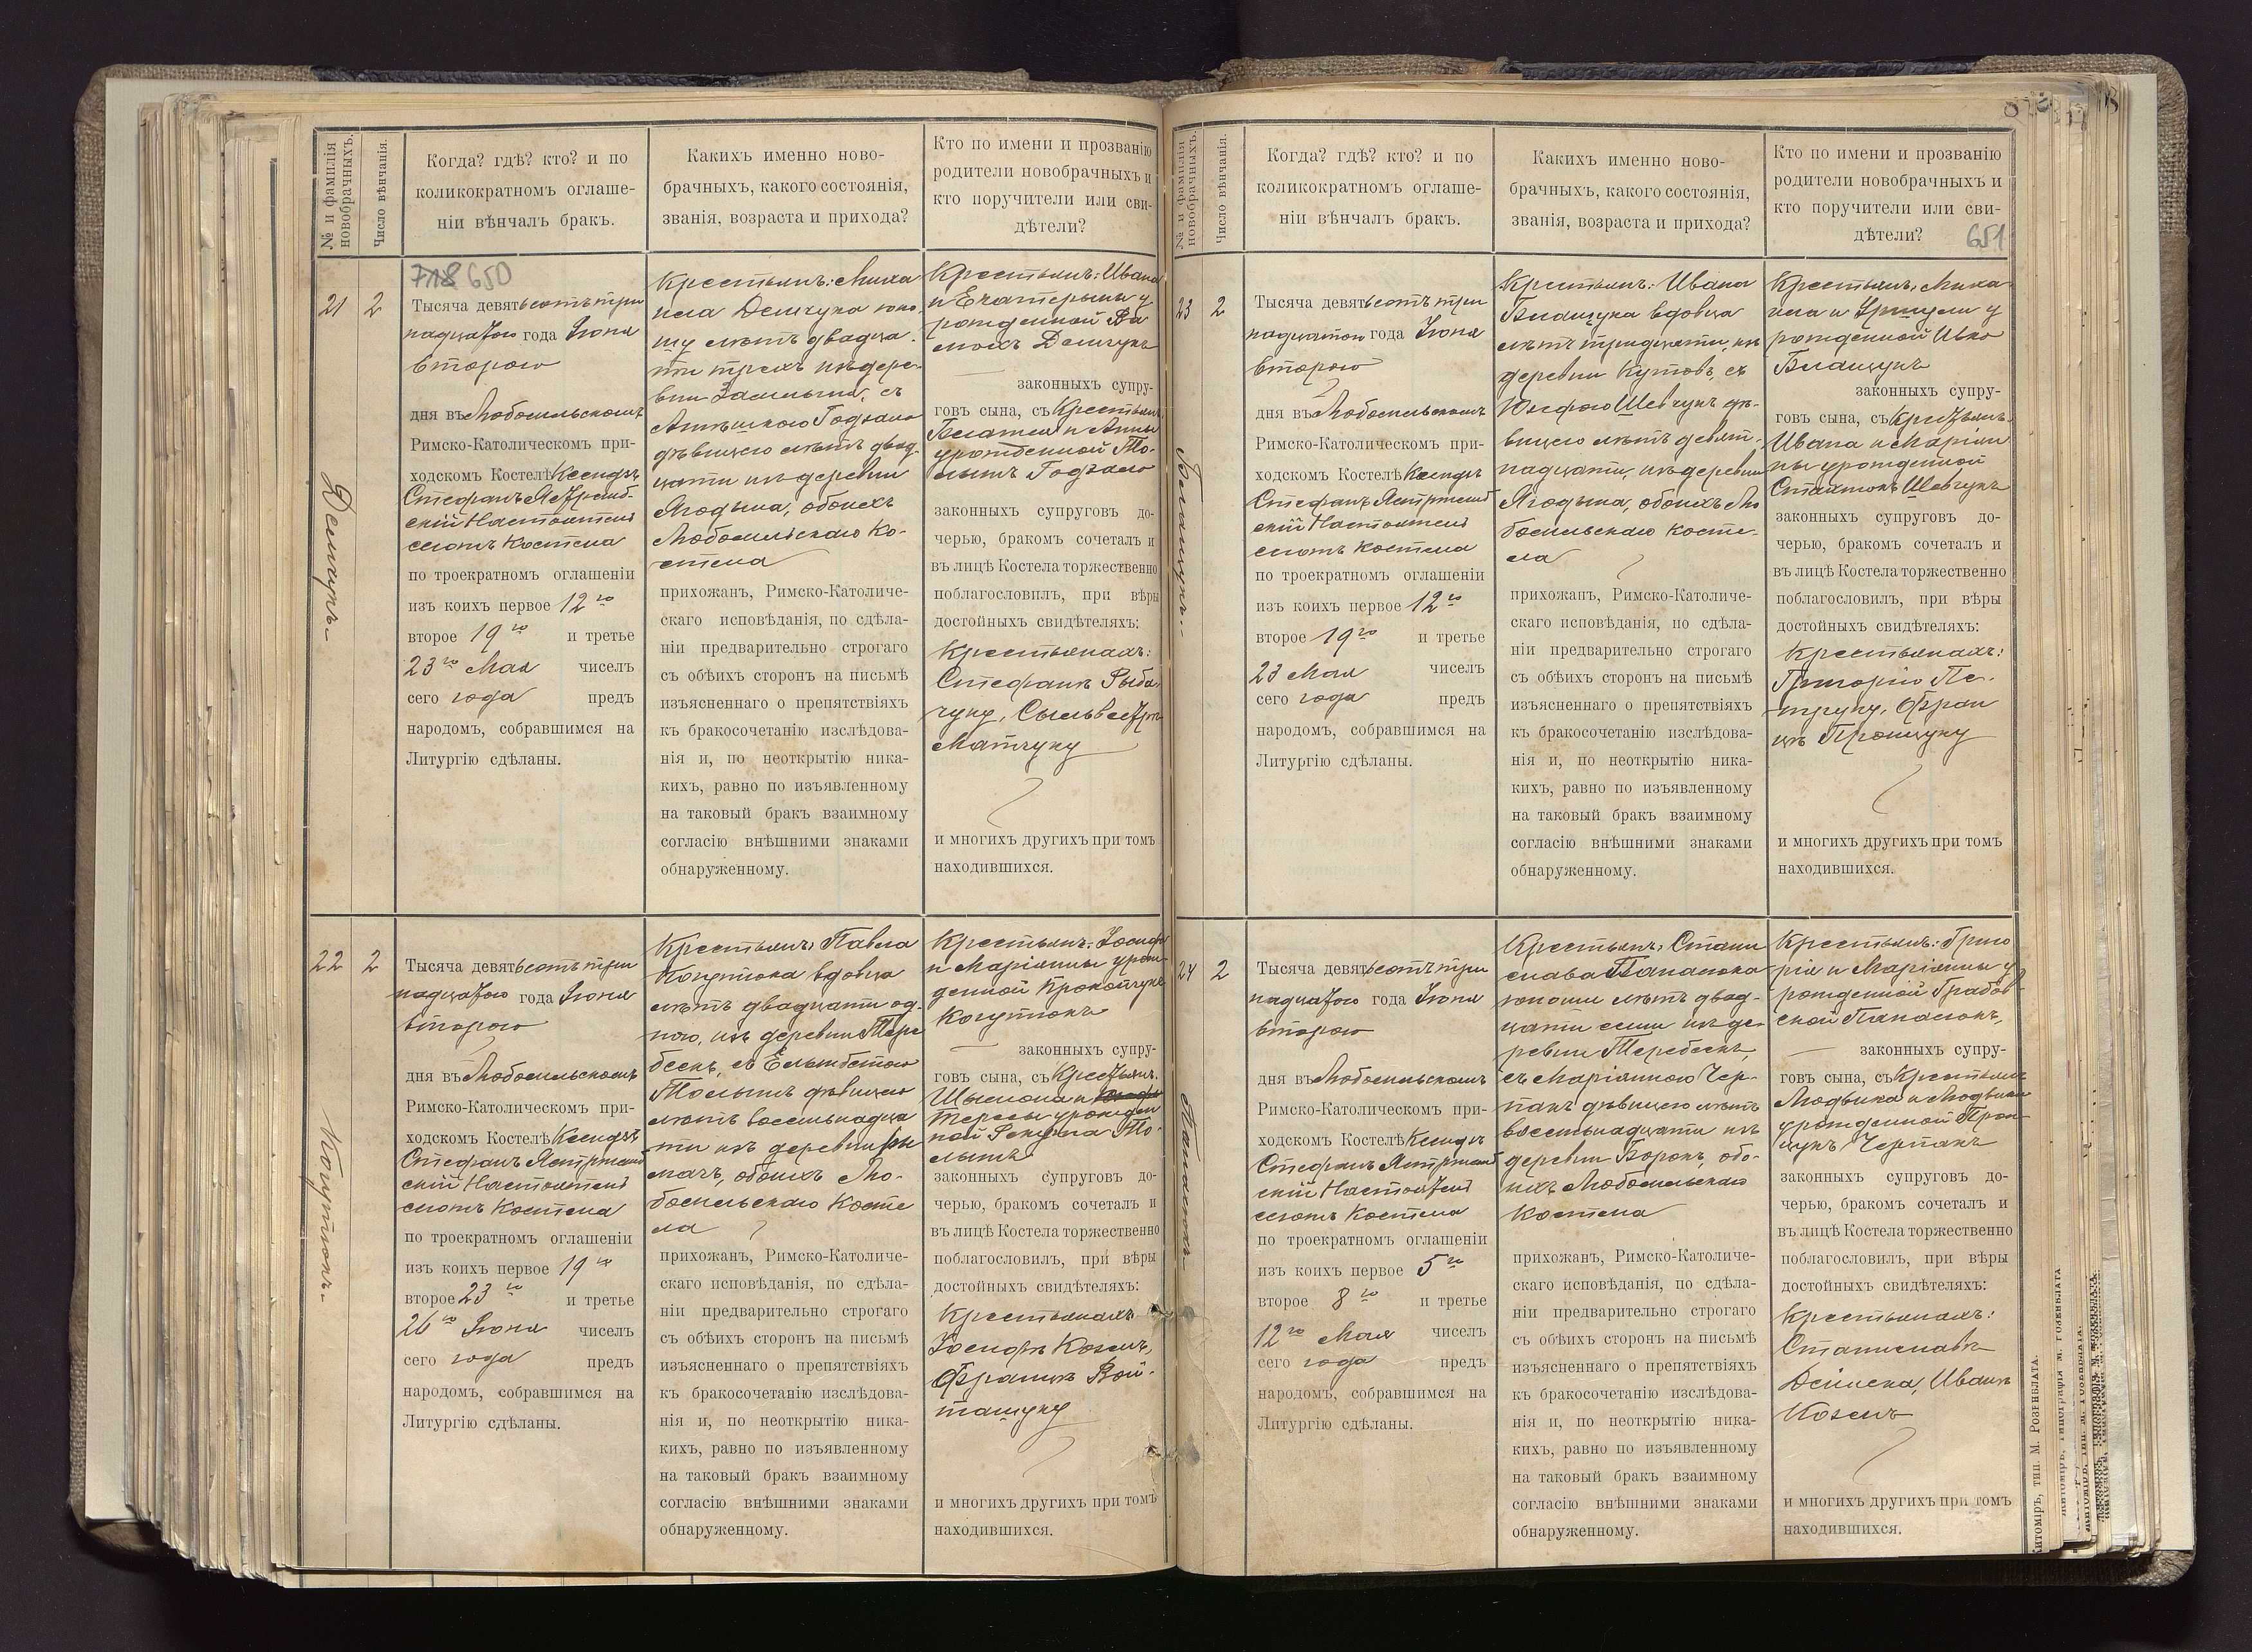 № и фамилія новобрачныхъ.
Число вѣнчанія.
Когда? гдѣ? кто? и по
коликократномъ оглаше-
ніи вѣнчалъ бракъ.
Какихъ именно ново-
брачныхъ, какого состоянія,
званія, возраста и прихода?
Кто по имени и прозванію
родители новобрачныхъ и
кто поручители или сви-
дѣтели?
650
21
2
Демчукъ
Тысяча девятьсотъ три
надцатого года Іюня
второго
дня въ Любомльскомъ
Римско-Католическомъ при-
ходскомъ Костелѣ Ксендзъ
Стефанъ Ястрѫемб-
скій Настоятель
сегожъ Костела
по троекратномъ оглашеніи
изъ коихъ первое 12го
второе 19го и третье
23го Мая чиселъ
сего года предъ
народомъ, собравшимся на
Литургію сдѣланы.
Крестьянъ: Миха
ила Демчука юно-
шу лѣтъ двадца-
ти трехъ изъ дере-
вни Замлыня, съ
Агнѣшкою
дѣвицею лѣтъ двад-
цати изъ деревни
Ягодына, обоихъ
Любомльскаго Ко-
стела
прихожанъ, Римско-Католиче-
скаго исповѣданія, по сдѣла-
ніи предварительно строгаго
съ обѣихъ сторонъ на письмѣ
изъясненнаго о препятствіяхъ
къ бракосочетанію изслѣдова-
нія и, по неоткрытію ника-
кихъ, равно по изъявленному
на таковый бракъ взаимному
согласію внѣшними знаками
обнаруженному.
Крестьянъ: Ивана
и Екатерыны у
рожденной
Демчукъ
законныхъ супру-
говъ сына, съ Крестьянъ
и Анны
урожденной
законныхъ супруговъ до-
черью, бракомъ сочеталъ и
въ лицѣ Костела торжественно
поблагословилъ, при вѣры
достойныхъ свидѣтеляхъ:
Крестьянахъ:
Стефанѣ Рыба-
чуку, Сыльвестрѣ
Матчуку
и многихъ другихъ при томъ
находившихся.
22
2
Когутюкъ
Тысяча девятьсотъ три
надцатого года Іюня
второго
дня въ Любомльскомъ
Римско-Католическомъ при-
ходскомъ Костелѣ Ксендзъ
Стефанъ
скій Настоятель
сегожъ Костела
по троекратномъ оглашеніи
изъ коихъ первое 19го
второе 23го и третье
26го Іюня чиселъ
сего года предъ
народомъ, собравшимся на
Литургію сдѣланы.
Крестьянъ: Павла
Когутюка вдовца
лѣтъ двадцати од-
ного, изъ деревни Тере
бескъ, съ Ельжбетою
дѣвицею
лѣтъ восемьнадца
ти изъ деревни
обоихъ Лю-
бомльскаго Косте
ла
прихожанъ, Римско-Католиче-
скаго исповѣданія, по сдѣла-
ніи предварительно строгаго
съ обѣихъ сторонъ на письмѣ
изъясненнаго о препятствіяхъ
къ бракосочетанію изслѣдова-
нія и, по неоткрытію ника-
кихъ, равно по изъявленному
на таковый бракъ взаимному
согласію внѣшними знаками
обнаруженному.
Крестьянъ: Іосифа
и Маріянны урож-
денной
Когутюкъ
законныхъ супру-
говъ сына, съ Крестьянъ
Шымона и
Тересы урожден
ной
законныхъ супруговъ до-
черью, бракомъ сочеталъ и
въ лицѣ Костела торжественно
поблагословилъ, при вѣры
достойныхъ свидѣтеляхъ:
Крестьянахъ
Іосифѣ Козелъ,
Францѣ Вой-
ташуку
и многихъ другихъ при томъ
находившихся.
№ и фамилія новобрачныхъ.
Число вѣнчанія.
Когда? гдѣ? кто? и по
коликократномъ оглаше-
ніи вѣнчалъ бракъ.
Какихъ именно ново-
брачныхъ, какого состоянія,
званія, возраста и прихода?
Кто по имени и прозванію
родители новобрачныхъ и
кто поручители или сви-
дѣтели?
651
23
2
Тысяча девятьсотъ три
надцатого года Іюня
второго
дня въ Любомльскомъ
Римско-Католическомъ при-
ходскомъ Костелѣ Ксендзъ
Стефанъ
скій Настоятель
сегожъ Костела
по троекратномъ оглашеніи
изъ коихъ первое 12го
второе 19го и третье
23 Мая чиселъ
сего года предъ
народомъ, собравшимся на
Литургію сдѣланы.
Крестьянъ: Ивана
вдовца
лѣтъ тридцати, изъ
деревни Кутовъ, съ
Юзефою Шевчукъ дѣ-
вицею лѣтъ девят-
надцати, изъ деревни
Ягодына, обоихъ Лю
бомльскаго Косте-
ла
прихожанъ, Римско-Католиче-
скаго исповѣданія, по сдѣла-
ніи предварительно строгаго
съ обѣихъ сторонъ на письмѣ
изъясненнаго о препятствіяхъ
къ бракосочетанію изслѣдова-
нія и, по неоткрытію ника-
кихъ, равно по изъявленному
на таковый бракъ взаимному
согласію внѣшними знаками
обнаруженному.
Крестьянъ: Миха
ила и Уршули у
рожденной
законныхъ супру-
говъ сына, съ Крестьянъ
Ивана и Маріян
ны урожденной
Шевчукъ
законныхъ супруговъ до-
черью, бракомъ сочеталъ и
въ лицѣ Костела торжественно
поблагословилъ, при вѣры
достойныхъ свидѣтеляхъ:
Крестьянахъ:
Григорію Пе-
труку, Фран
цѣ
и многихъ другихъ при томъ
находившихся.
24
2
Тысяча девятьсотъ три
надцатого года Іюня
второго
дня въ Любомльскомъ
Римско-Католическомъ при-
ходскомъ Костелѣ Ксендзъ
Стефанъ
скій Настоятель
сегожъ Костела
по троекратномъ оглашеніи
изъ коихъ первое 5го
второе 8го и третье
12го Мая чиселъ
сего года предъ
народомъ, собравшимся на
Литургію сдѣланы.
Крестьянъ: Стани
слава
юноши лѣтъ двад-
цати семи изъ де-
ревни Теребескъ,
съ Маріянною Чер-
пакъ дѣвицею лѣтъ
восемьнадцати изъ
деревни Борокъ, обо-
ихъ Любомльскаго
Костела
прихожанъ, Римско-Католиче-
скаго исповѣданія, по сдѣла-
ніи предварительно строгаго
съ обѣихъ сторонъ на письмѣ
изъясненнаго о препятствіяхъ
къ бракосочетанію изслѣдова-
нія и, по неоткрытію ника-
кихъ, равно по изъявленному
на таковый бракъ взаимному
согласію внѣшними знаками
обнаруженному.
Крестьянъ: Григо
рія и Маріянны у
рожденной Грабов-
ской
законныхъ супру-
говъ сына, съ Крестьянъ
Людвика и Людвики
урожденной
Черпакъ
законныхъ супруговъ до-
черью, бракомъ сочеталъ и
въ лицѣ Костела торжественно
поблагословилъ, при вѣры
достойныхъ свидѣтеляхъ:
Крестьянахъ:
Станиславѣ
Иванѣ
Козелъ
и многихъ другихъ при томъ
находившихся.
Житоміръ, тип. М. Розенблата.